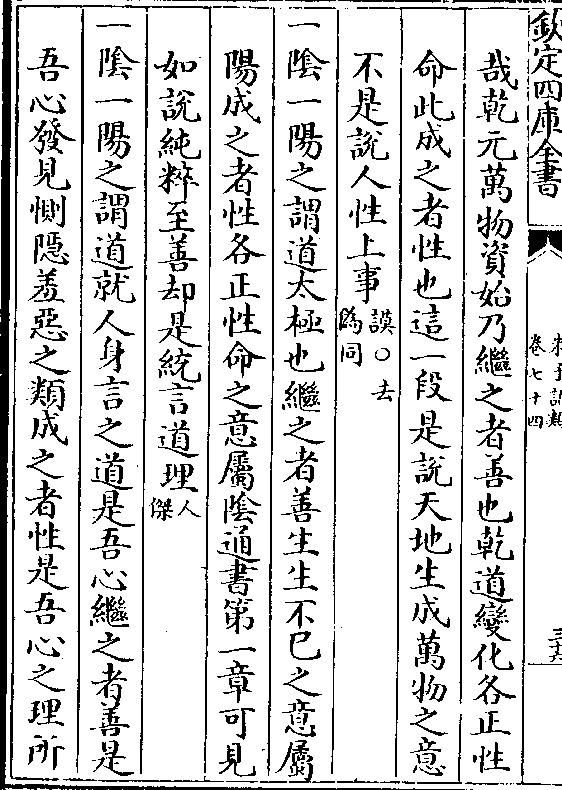 欽定四庫全書
朱子語類
卷七十四
三十六
哉乾元萬物資始乃繼之者善也乾道變化各正性
命此成之者性也這一段是說天地生成萬物之意
不是說人性上事謨○去
偽同
一陰一陽之謂道太極也繼之者善生生不已之意屬
陽成之者性各正性命之意屬陰通書第一章可見
如說純粹至善却是統言道理人
傑
一陰一陽之謂道就人身言之道是吾心繼之者善是
吾心發見惻隱羞惡之類成之者性是吾心之理所